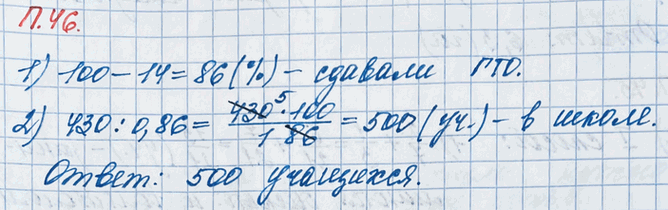 П.46.
1) 100 - 14 = 86 (%) - сдавали ГТО.
2) 430 : 0,86 = (430 · 100)/86 = 500 (уч.) - в школе.
5
1
Ответ: 500 учащихся.